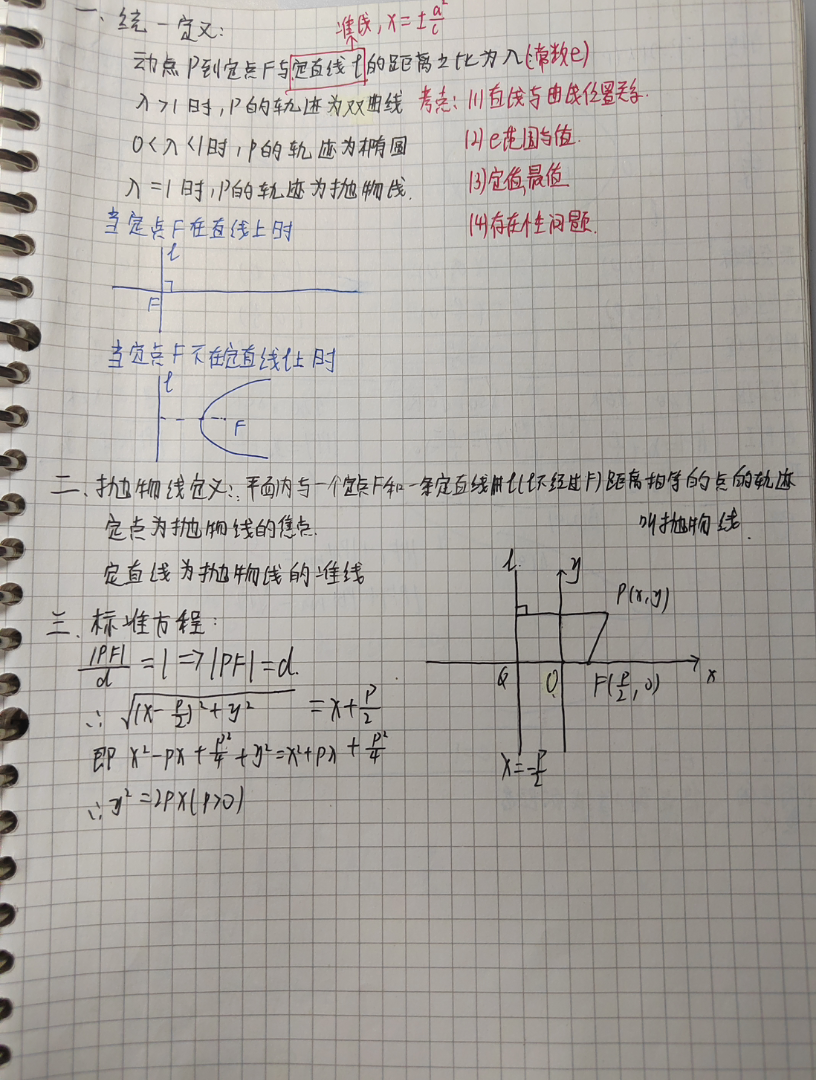 一、统一定义:
准线, x=±a²/c
动点P到定点F与定直线l的距离之比为λ(常数e)
λ>1时,P的轨迹为双曲线
考点: (1)直线与曲线位置关系.
0<λ<1时,P的轨迹为椭圆
(2)e范围与值.
λ=1时,P的轨迹为抛物线.
(3)定值,最值
当定点F在直线上时
(4)存在性问题.
l
F
当定点F不在定直线l上时
l
F
二、抛物线定义:平面内与一个定点F和一条定直线l(l不经过F)距离相等的点的轨迹
叫抛物线.
定点为抛物线的焦点.
定直线为抛物线的准线
三、标准方程:
|PF|/d=1=>|PF|=d.
∴√((x-p/2)²+y²)=x+p/2
即x²-px+p²/4+y²=x²+px+p²/4
∴y²=2px(p>0)
l
y
P(x,y)
Q
O
F(p/2,0)
x
x=-p/2